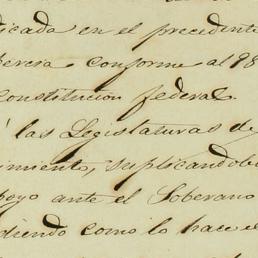 icada en el precedente
beria conforme al 98
Constitucion federal
á las Legislaturas de
imiento, suplicandole
poyo ante el Soberano
diendo como lo hace el